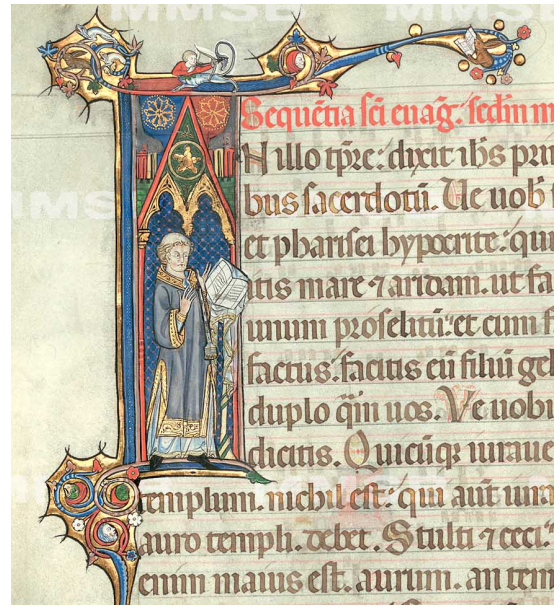 Sequētia sēi euāg. secdm m
N illo tp̄re: dixit ihs̄ prin
bus sacerdotū. Ue uob
et pharisei hypocrite: qui
itis mare ⁊ aridam. ut fa
unum proselitū: et cum f
factus. facitis eū filiū geh
duplo qm̄ uos. Ve uobi
dicitis. Quicūq; iuraue
templum. nichil est: qui aūt iura
auro templi. debet. Stulti ⁊ ceci.
enim maius est. aurum. an tem